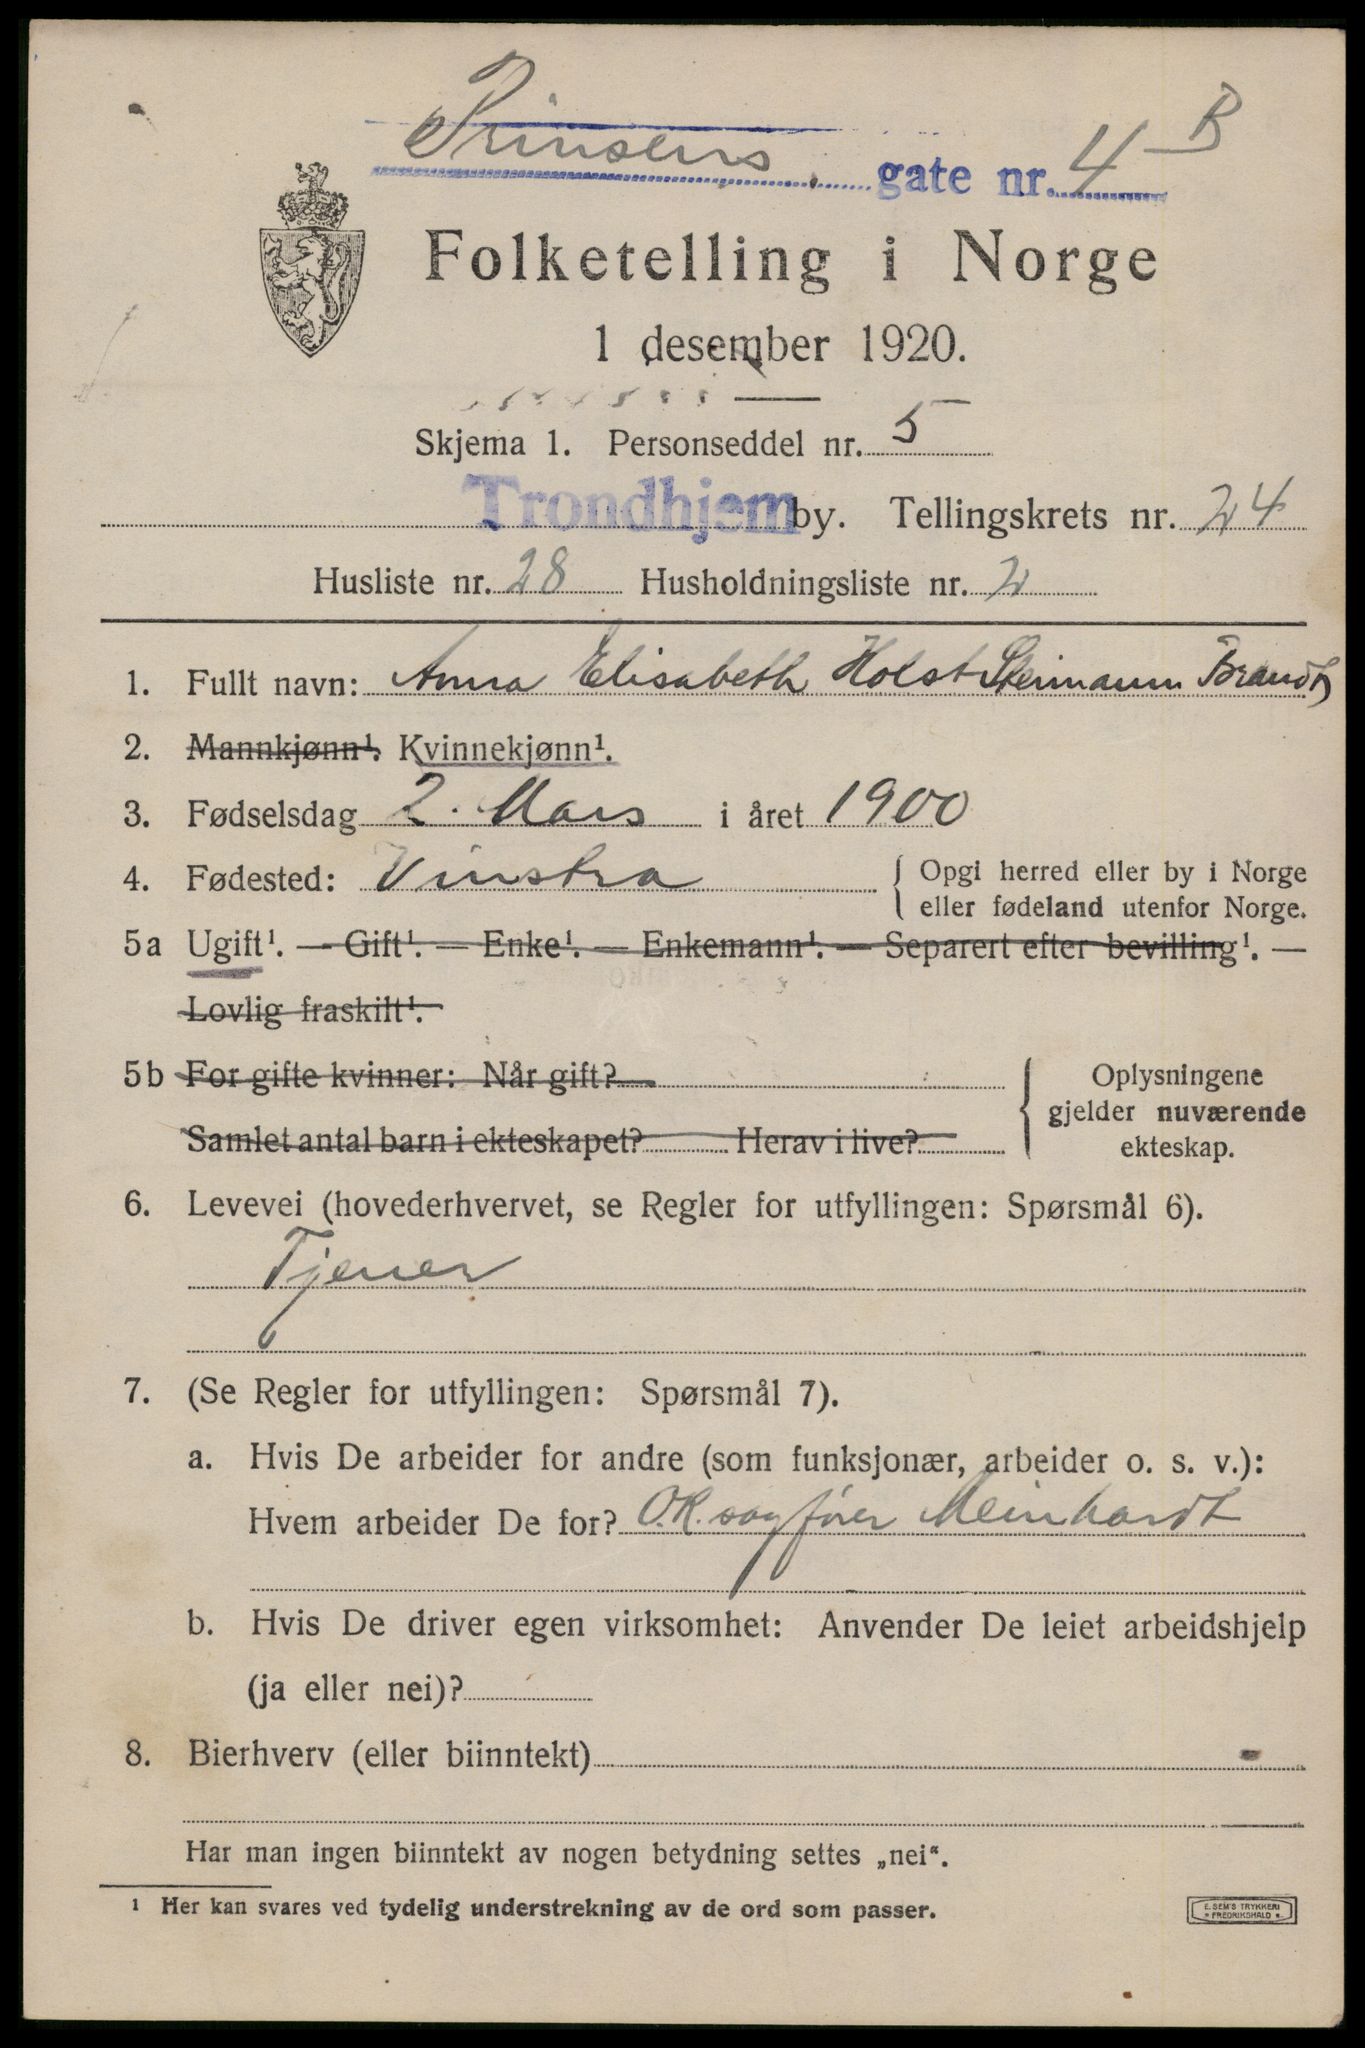 Prinsens gate nr. 4 B
Folketelling i Norge
1 desember 1920.
Skjema 1. Personseddel nr. 5
Trondhjem by. Tellingskrets nr. 24
Husliste nr. 28 Husholdningsliste nr. 2
1. Fullt navn: Anna Elisabeth Holst Steimann Brandt
2. Mannkjønn¹. Kvinnekjønn¹.
3. Fødselsdag 2. Mars i året 1900
4. Fødested: Vinstra { Opgi herred eller by i Norge
eller fødeland utenfor Norge.
5a Ugift¹. — Gift¹. — Enke¹. — Enkemann¹. — Separert efter bevilling¹. —
Lovlig fraskilt¹.
5b For gifte kvinner: Når gift? { Oplysningene
gjelder nuværende
Samlet antal barn i ekteskapet? Herav i live?
ekteskap.
6. Levevei (hovederhvervet, se Regler for utfyllingen: Spørsmål 6).
Tjener
7. (Se Regler for utfyllingen: Spørsmål 7).
a. Hvis De arbeider for andre (som funksjonær, arbeider o. s. v.):
Hvem arbeider De for? O.R.sagfører Meinhardt
b. Hvis De driver egen virksomhet: Anvender De leiet arbeidshjelp
(ja eller nei)?
8. Bierhverv (eller biinntekt) -
Har man ingen biinntekt av nogen betydning settes „nei“.
¹ Her kan svares ved tydelig understrekning av de ord som passer.
E. SEM'S TRYKKERI
FREDRIKSHALD